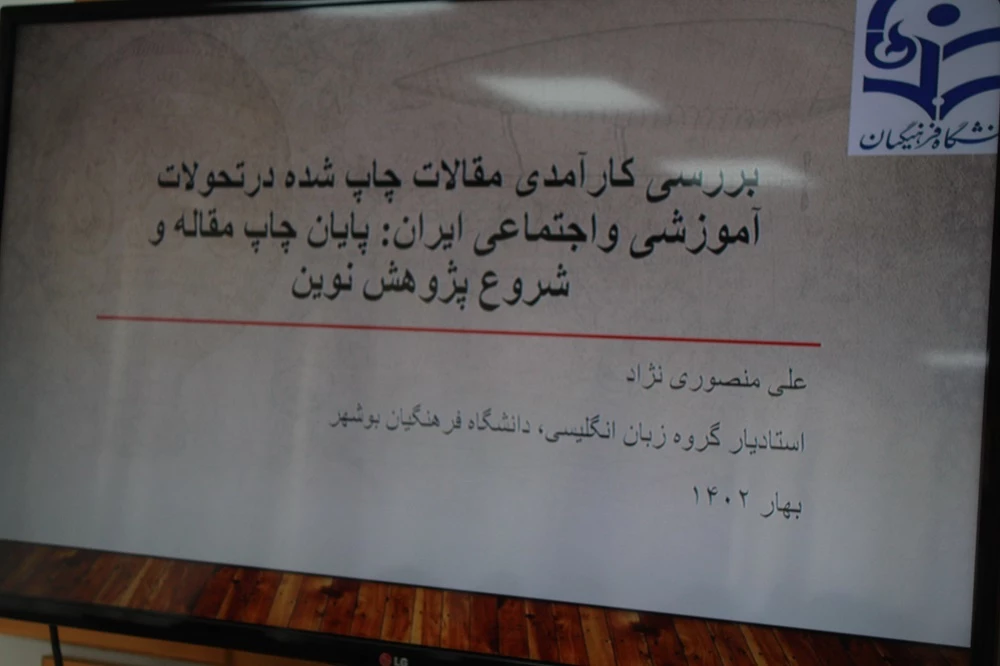 دانشگاه فرهنگیان
بررسی کارآمدی مقالات چاپ شده درتحولات
آموزشی واجتماعی ایران: پایان چاپ مقاله و
شروع پژوهش نوین
علی منصوری نژاد
استادیار گروه زبان انگلیسی، دانشگاه فرهنگیان بوشهر
بهار ۱۴۰۲
LG